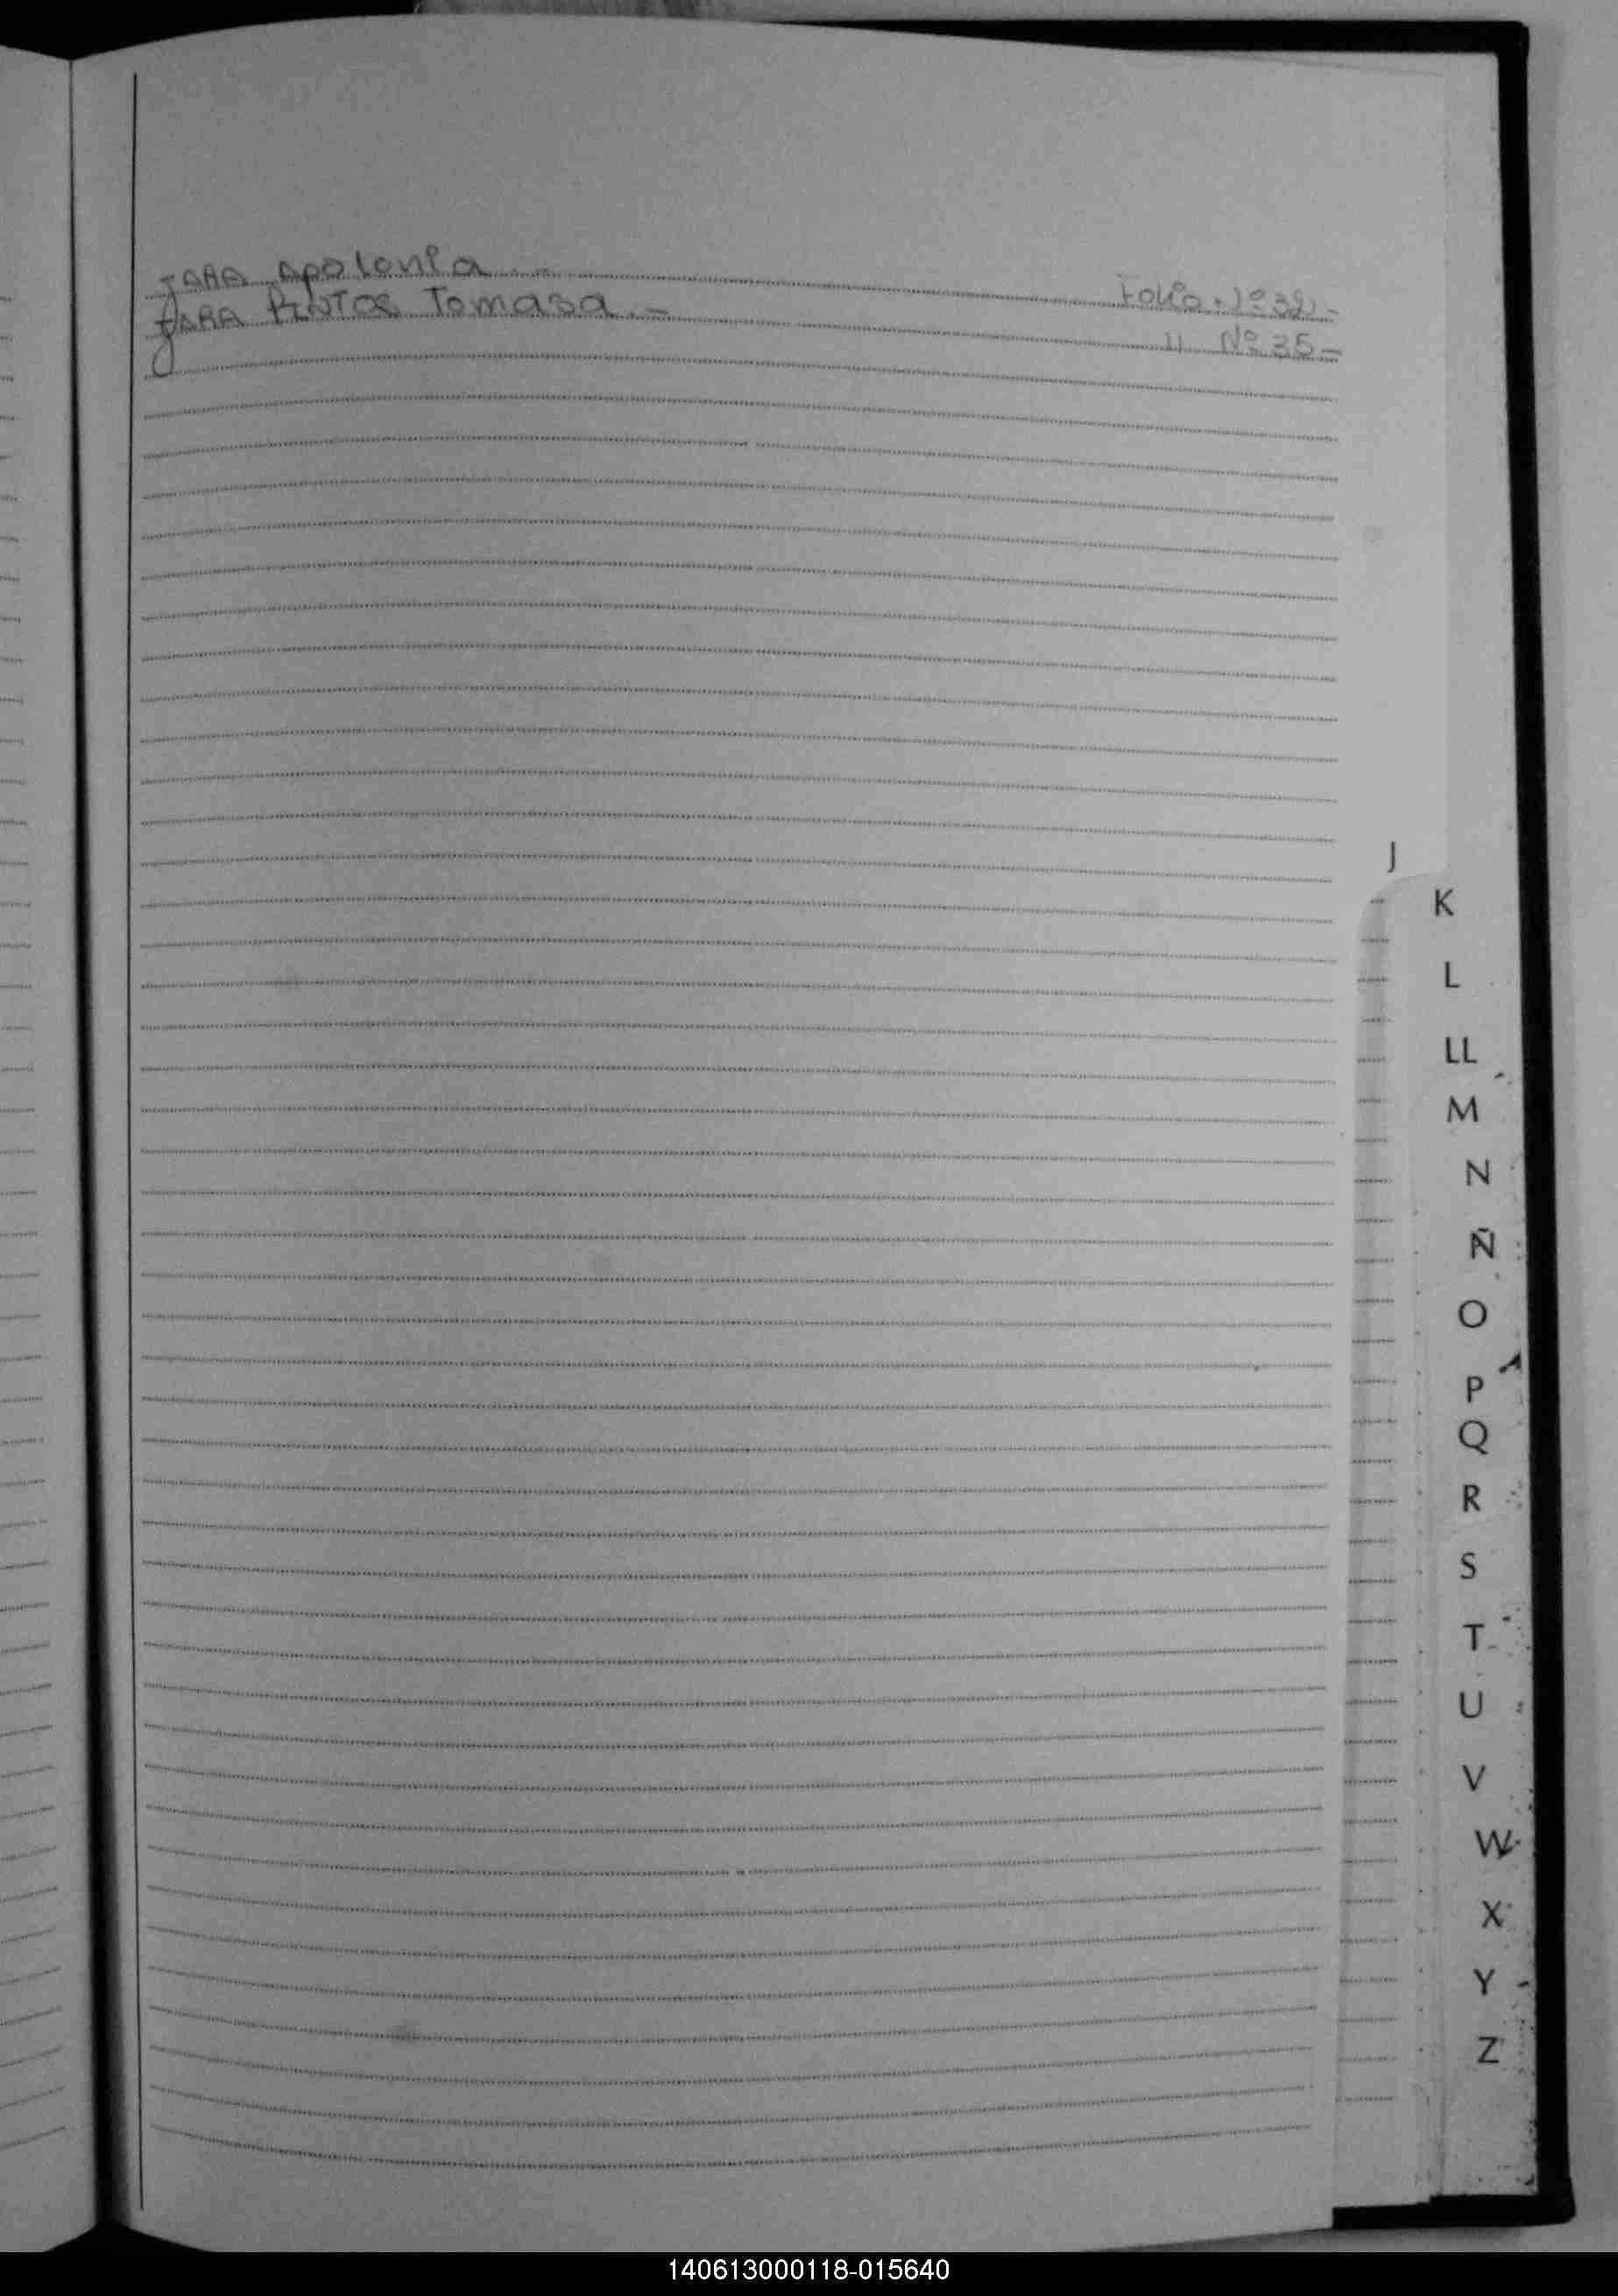 JARA Apolonia. - Folio Nº 32 -
JARA PINTOS Tomasa. - " Nº 35 -
J
K
L
LL
M
N
Ñ
O
P
Q
R
S
T
U
V
W
X
Y
Z
140613000118-015640